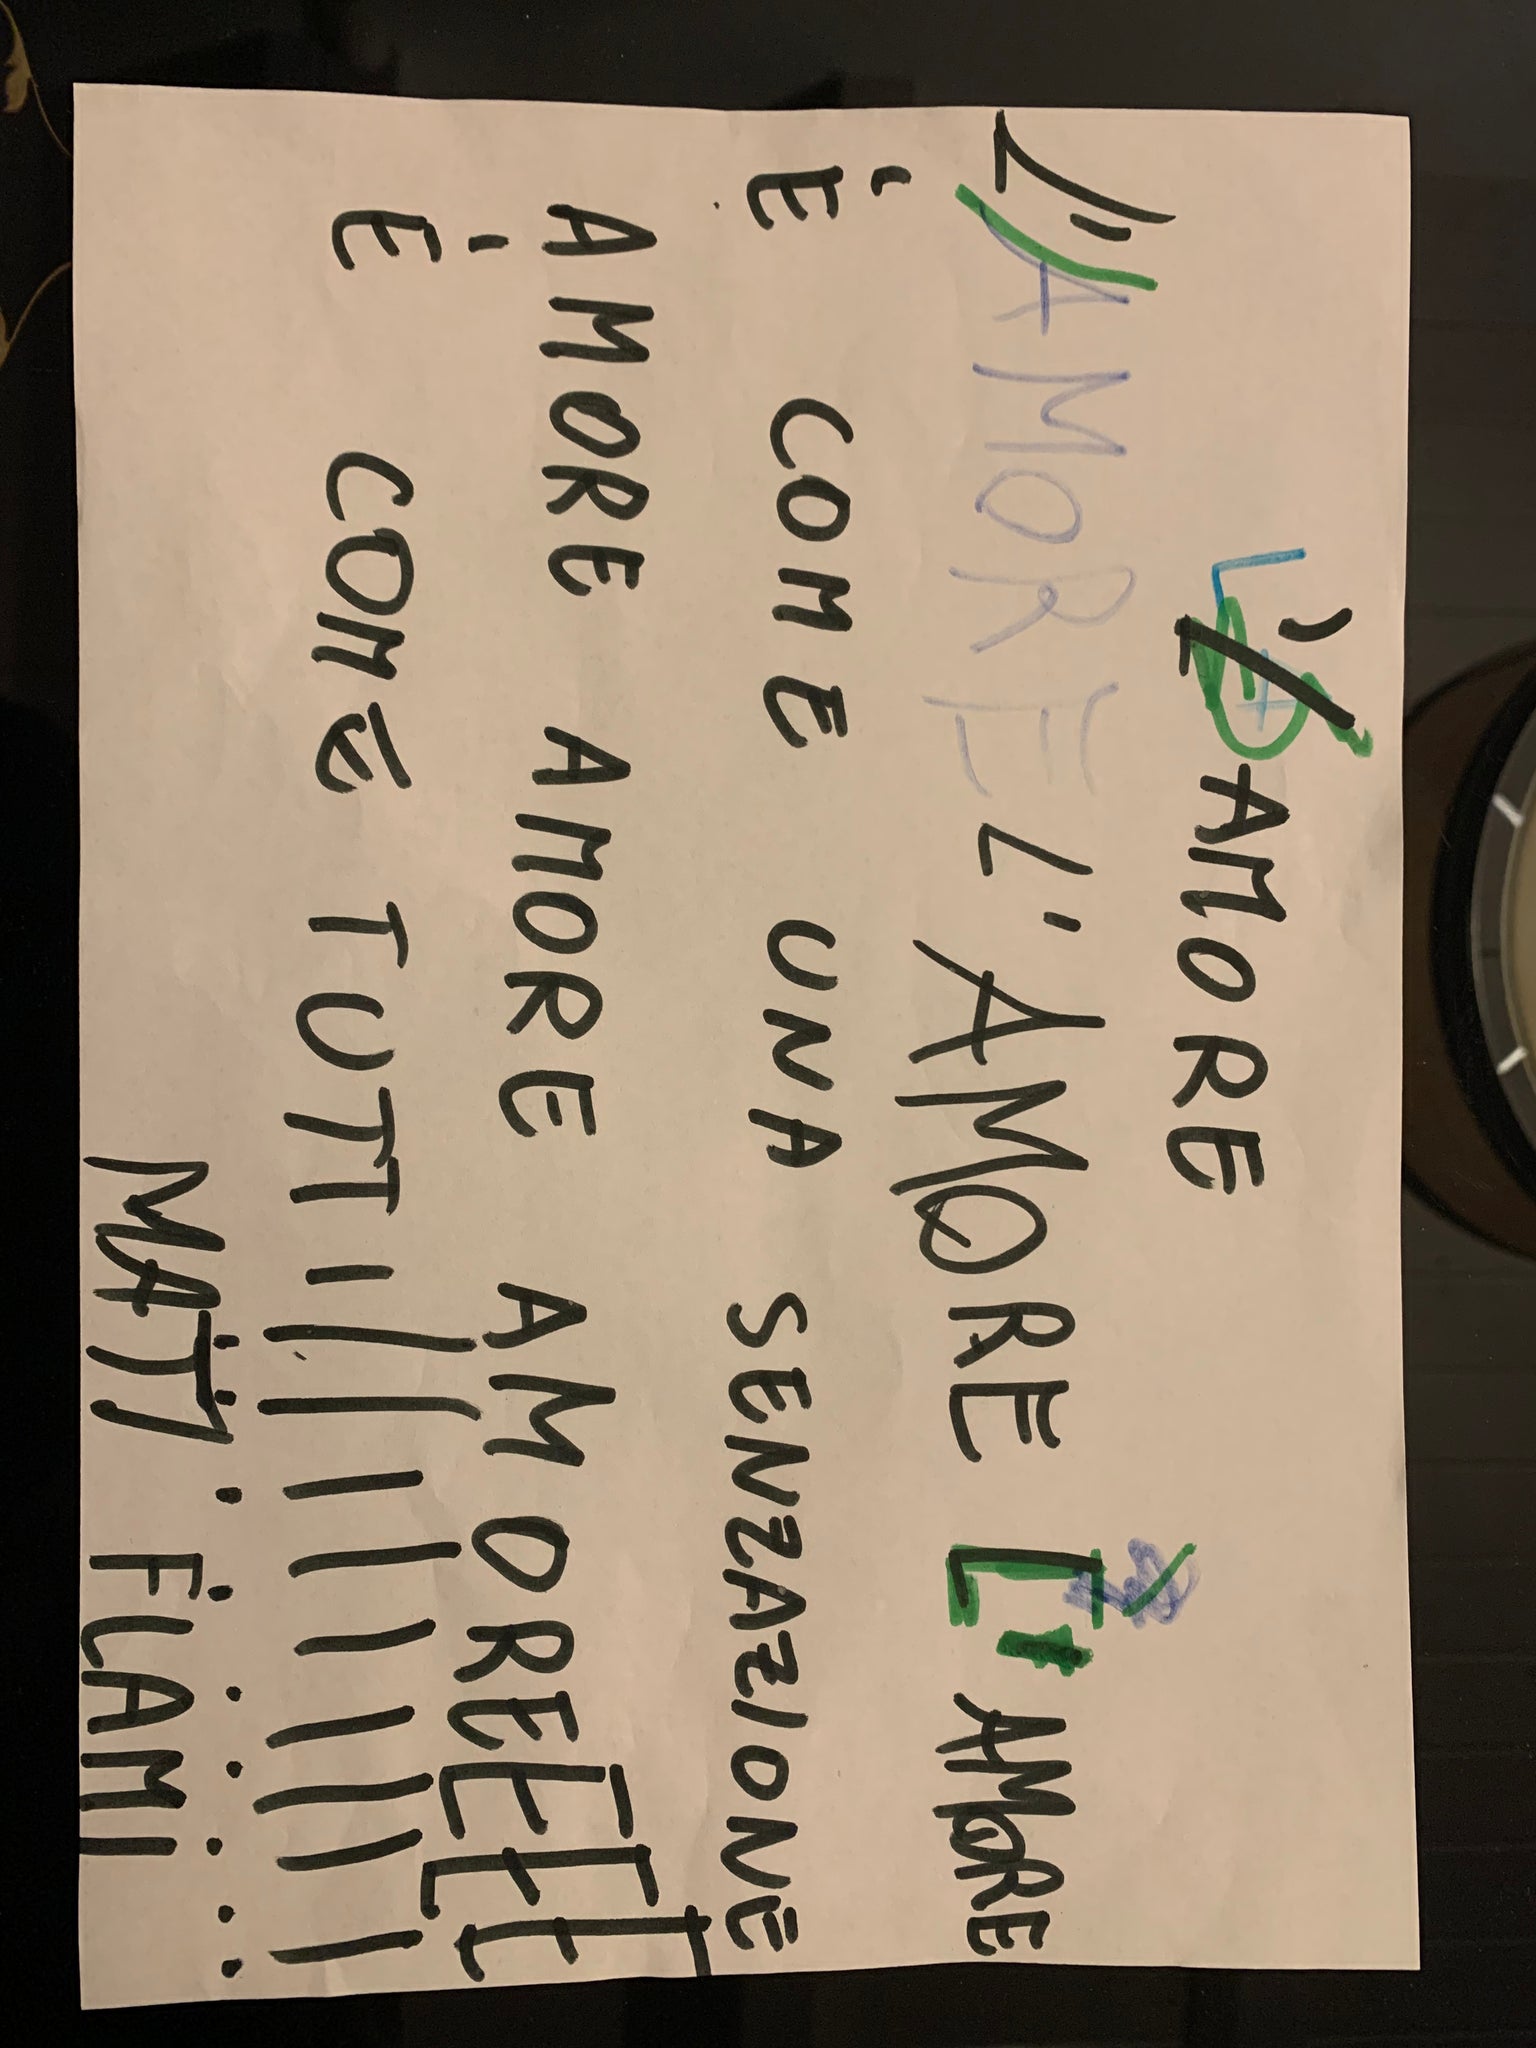 L'AMORE
L'AMORE L'AMORE L'AMORE
È COME UNA SENZAZIONE
AMORE AMORE AMOREEEE
È COME TUTTIIIIIIIIIII
MATTI FLAMI